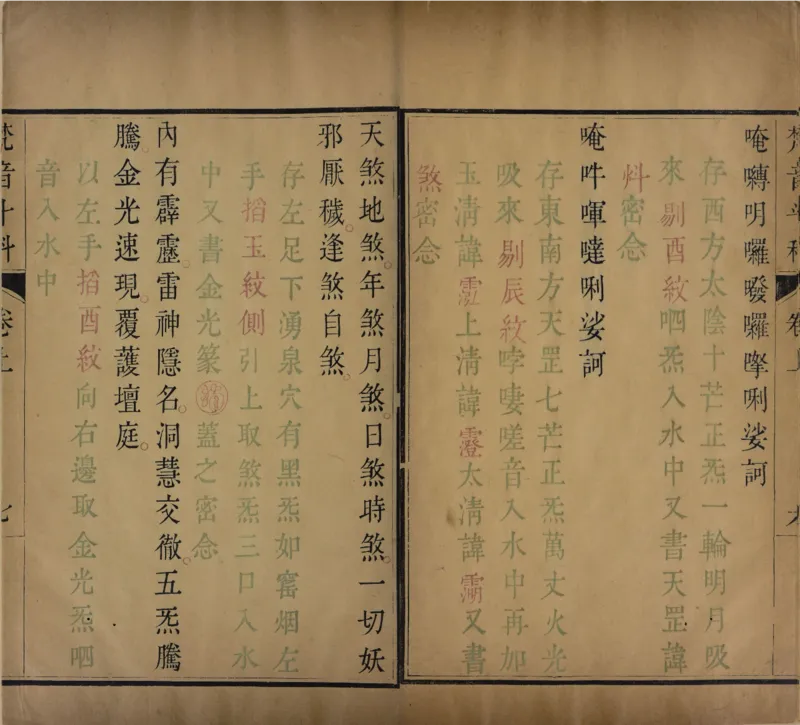 唵囀明囉㗶囉㘑唎娑訶
存西方太陰十芒正炁一輪明月吸
來剔酉紋呬炁入水中又書天罡諱
密念
唵吽㖶噠唎娑訶
存東南方天罡七芒正炁萬丈火光
吸來剔辰紋哱嘍嗟音入水中再加
玉淸諱上淸諱太淸諱又書
煞密念
天煞地煞。年煞月煞。日煞時煞。一切妖
邪厭穢。逢煞自煞。
存左足下湧泉穴有黑炁如窰烟左
手搯玉紋側引上取煞炁三口入水
中又書金光篆蓋之密念
內有霹靂。雷神隱名。洞慧交徹。五炁騰
騰。金光速現。覆護壇庭。
以左手搯酉紋向右邊取金光炁呬
音入水中
梵音斗科
卷上